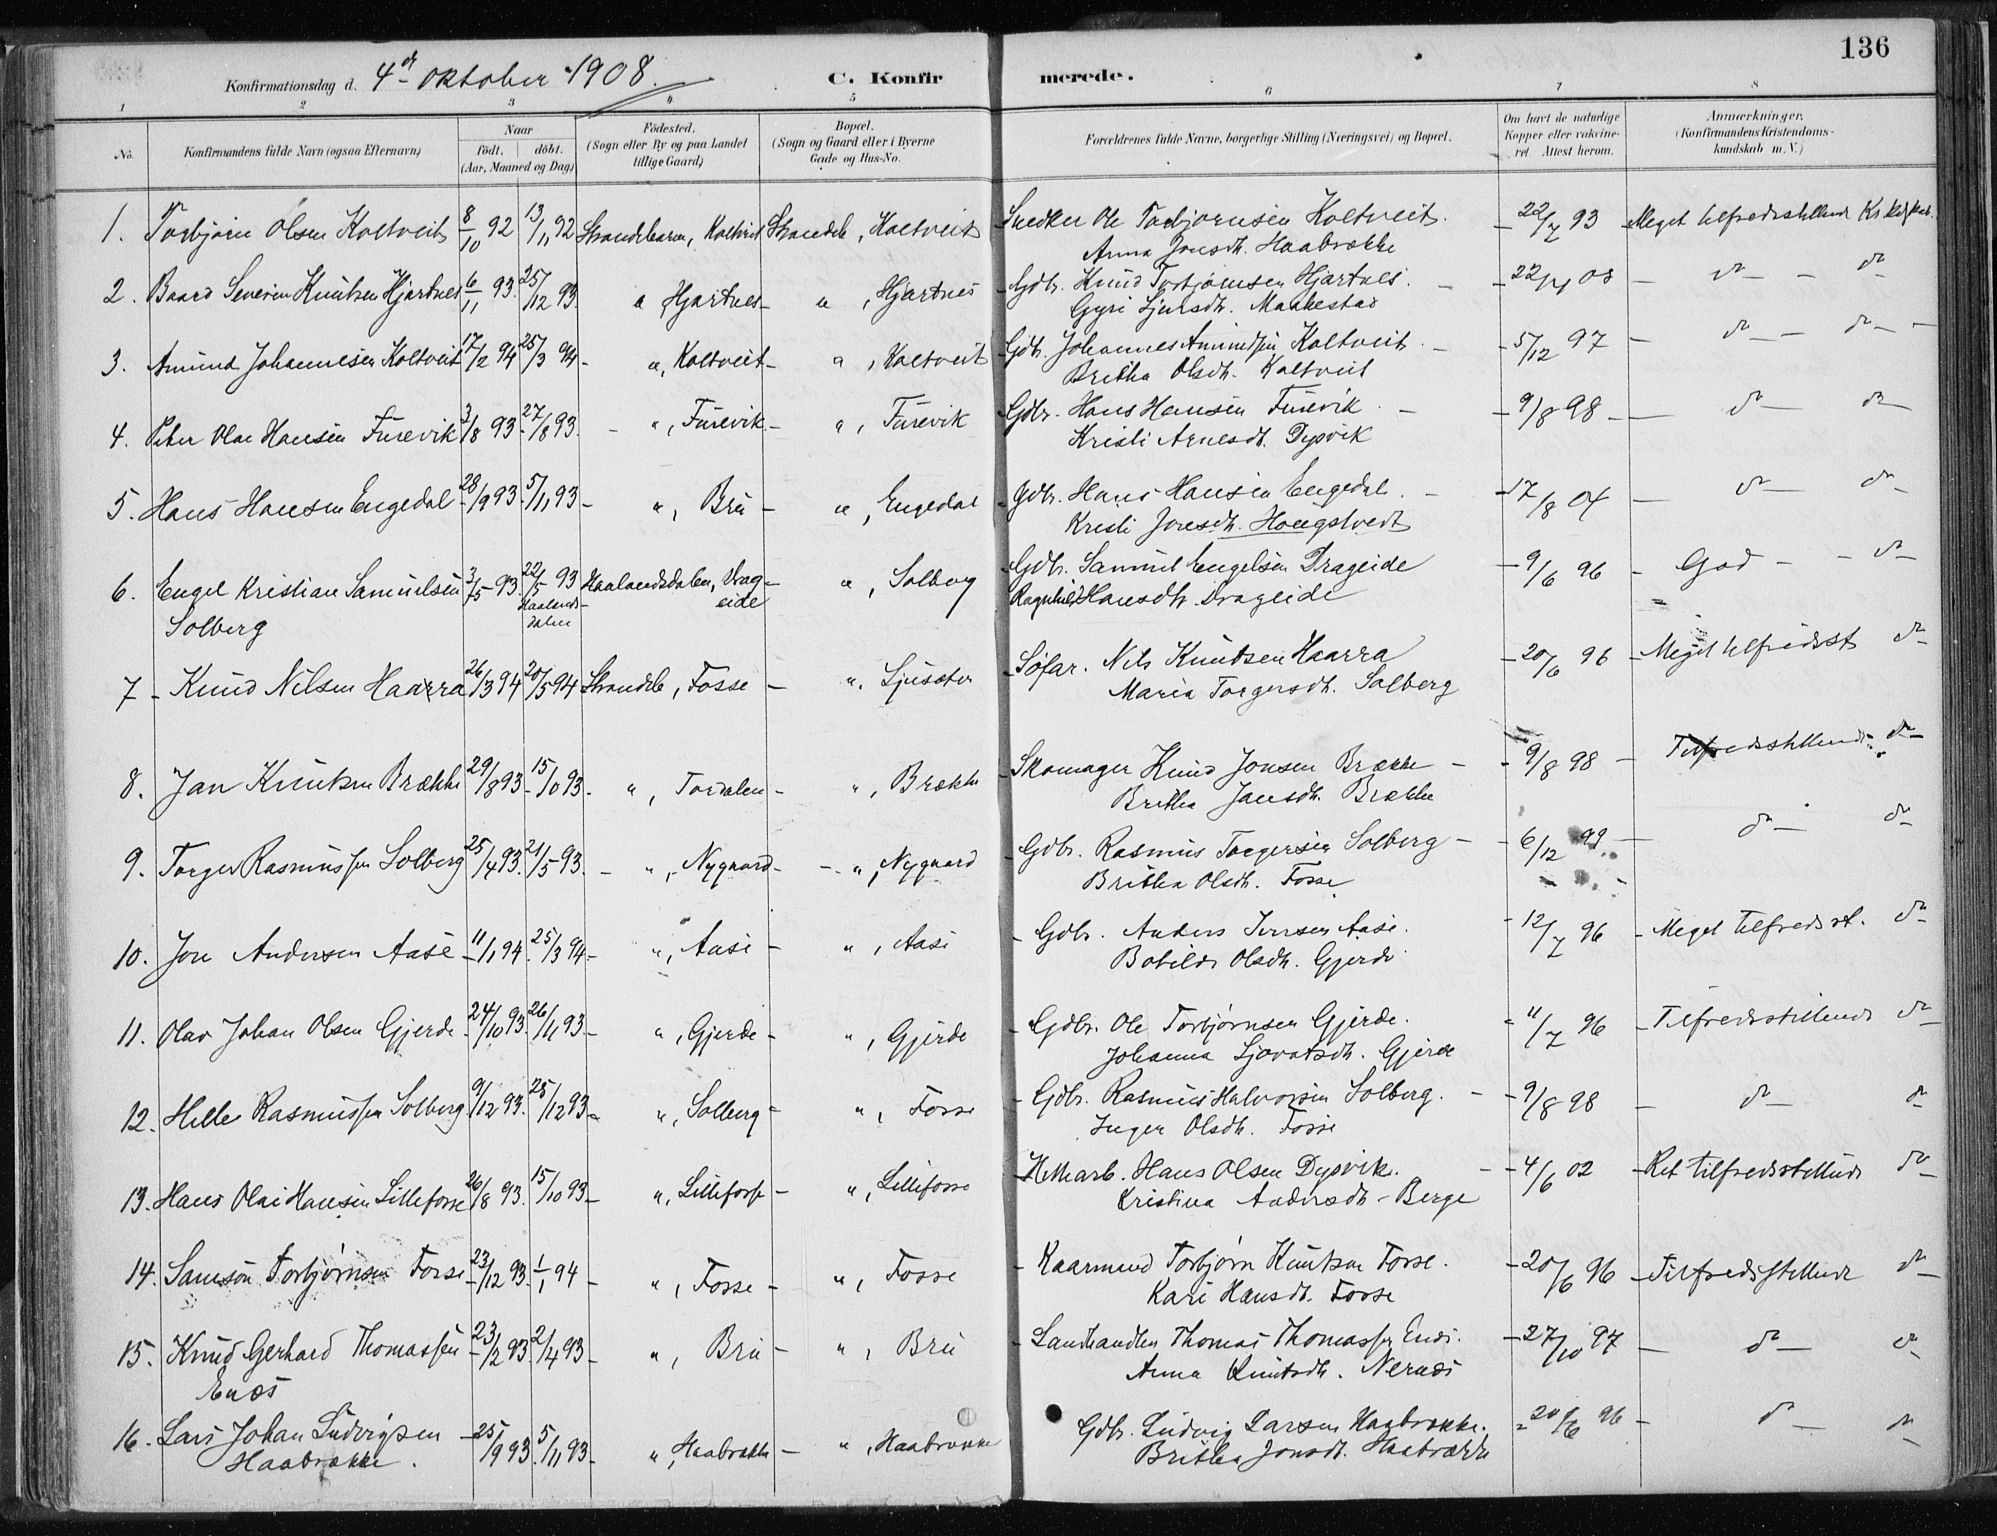 136
Konfirmationsdag d. 4de Oktober 1908. C. Konfirmerede.
1 2 3 4 5 6 7 8
No. Konfirmandens fulde Navn (ogsaa Efternavn) Naar født. døbt. (Aar, Maaned og Dag) Födested. (Sogn eller By og paa Landet tillige Gaard) Bopæl. (Sogn og Gaard eller i Byerne Gade og Hus-No. Forældrenes fulde Navne, borgerlige Stilling (Næringsvei) og Bopæl. Om havt de naturlige Kopper eller vaccineret Attest herom. Anmærkninger. (Konfirmandens Kristendomskundskab m. V.)
1. Torbjörn Olsen Koltveit 8/10 92 13/11 92 Strandebarm, Koltveit Strandeb, Koltveit Snedker Ole Torbjørnsen Koltveit. 22/7 93 Meget tilfredsstillende Kr.
Anna Jonsdt. Haabrække
2. Baard Severin Knutsen Hjartnes 6/11 93. 25/12 93. " Hjartnes - " , Hjartnes Gdbr. Knud Torbjörnsen Hjartnes. do - do
Gyri Sjursdt. Maakestad
3. Amund Johannesen Koltveit 17/2 94 25/3 94 - ", Koltveit - " , Koltveit Gdbr. Johannes Amundsen Koltveit. - 5/12 97 - do - do -
Britha Olsdt. Koltveit
4. Peter Olai Hansen Furevik 3/8 93 27/8 93. - ", Furevik - ", Furevik Gdbr. Hans Hansen Furevik. - 9/8 98 - do - do -
Kristi Arnesdt. Dysvik
5. Hans Hansen Engedal 28/9 93. 5/11 93 - ", Bru - ", Engedal Gdbr. Hans Hansen Engedal. - 17/8 04 - do - do -
Kristi Jonsdt. Hougstvedt
6. Engel Kristian Samuelsen 3/5 93. 22/5 93 Haalandsdalen, Drageide ", Solberg Gdbr. Samuel Engelsen Drageide - 9/6 96 - God - do -
Solberg Haalandsdalen Ragnhild Hansdt Drageide
7 - Knud Nilsen Haarra 26/3 94 20/5 94 Strandeb, Fosse - ", Ljusæter Söfar. Nils Knutsen Haarra - 20/6 96 - Meget tilfredsst do
Maria Torgersdt. Solberg
8. Jan Knutsen Brække 29/8 93 15/10 93. ", Tordalen - ", Brække Skomager Knud Jonsen Brække - 9/8 98 - Tilfredsstillende do
Britha Jansdt. Brække
9. Torger Rasmussen Solberg 25/4 93. 21/5 93. - ", Nygaard - ", Nygaard Gdbr. Rasmus Torgersen Solberg - 6/12 99 - do - do
Britha Olsdt. Fosse
10. Jon Andersen Aase 11/1 94. 25/3 94 - ", Aase - ", Aase - Gdbr. Anders Iversen Aase. - 12/7 96 - Meget Tilfredsst. do
Botilde Olsdt. Gjerde
11. Olav Johan Olsen Gjerde 24/10 93. 26/11 93 - ", Gjerde - ", Gjerde - Gdbr. Ole Torbjørnsen Gjerde. - 11/7 96 - Tilfredsstillende do
Johanna Sjovatsdt. Gjerde
12. Helle Rasmussen Solberg 9/12 93. 25/12 93 - ", Solberg - ", Fosse - Gdbr. Rasmus Halvorsen Solberg. - 9/8 98 - do - do
Inger Olsdt. Fosse
13. Hans Olai Hansen Lillefosse 26/8 93. 15/10 93 - ", Lillefosse - ", Lillefosse Hans Olsen Dysvik. - 4/6 02 - Ret tilfredsstillende do
Kristina Andersdt - Berge
14. Samson Torbjørnsen Fosse 23/12 93. 1/1 94 - ", Fosse - ", Fosse - Kaarmand Torbjørn Knutsen Fosse. - 20/6 96 - Tilfredsstillende do
Kari Hansdt. Fosse
15. Knud Gerhard Thomassen 23/2 93. 2/4 93 - ", Bru - ", Bru - Landhandler Thomas Thomassen Enæs. - 27/10 97 - do - do
Enæs Anna Knutsdt. Nernæs
16. Lars Johan Ludvigsen 25/9 93. 5/11 93 - ", Haabrække - ", Haabrække Gdbr. Ludvig Larsen Haabrække. - 20/6 96 - do - do
Haabrække. Britha Jonsdt. Haabrække